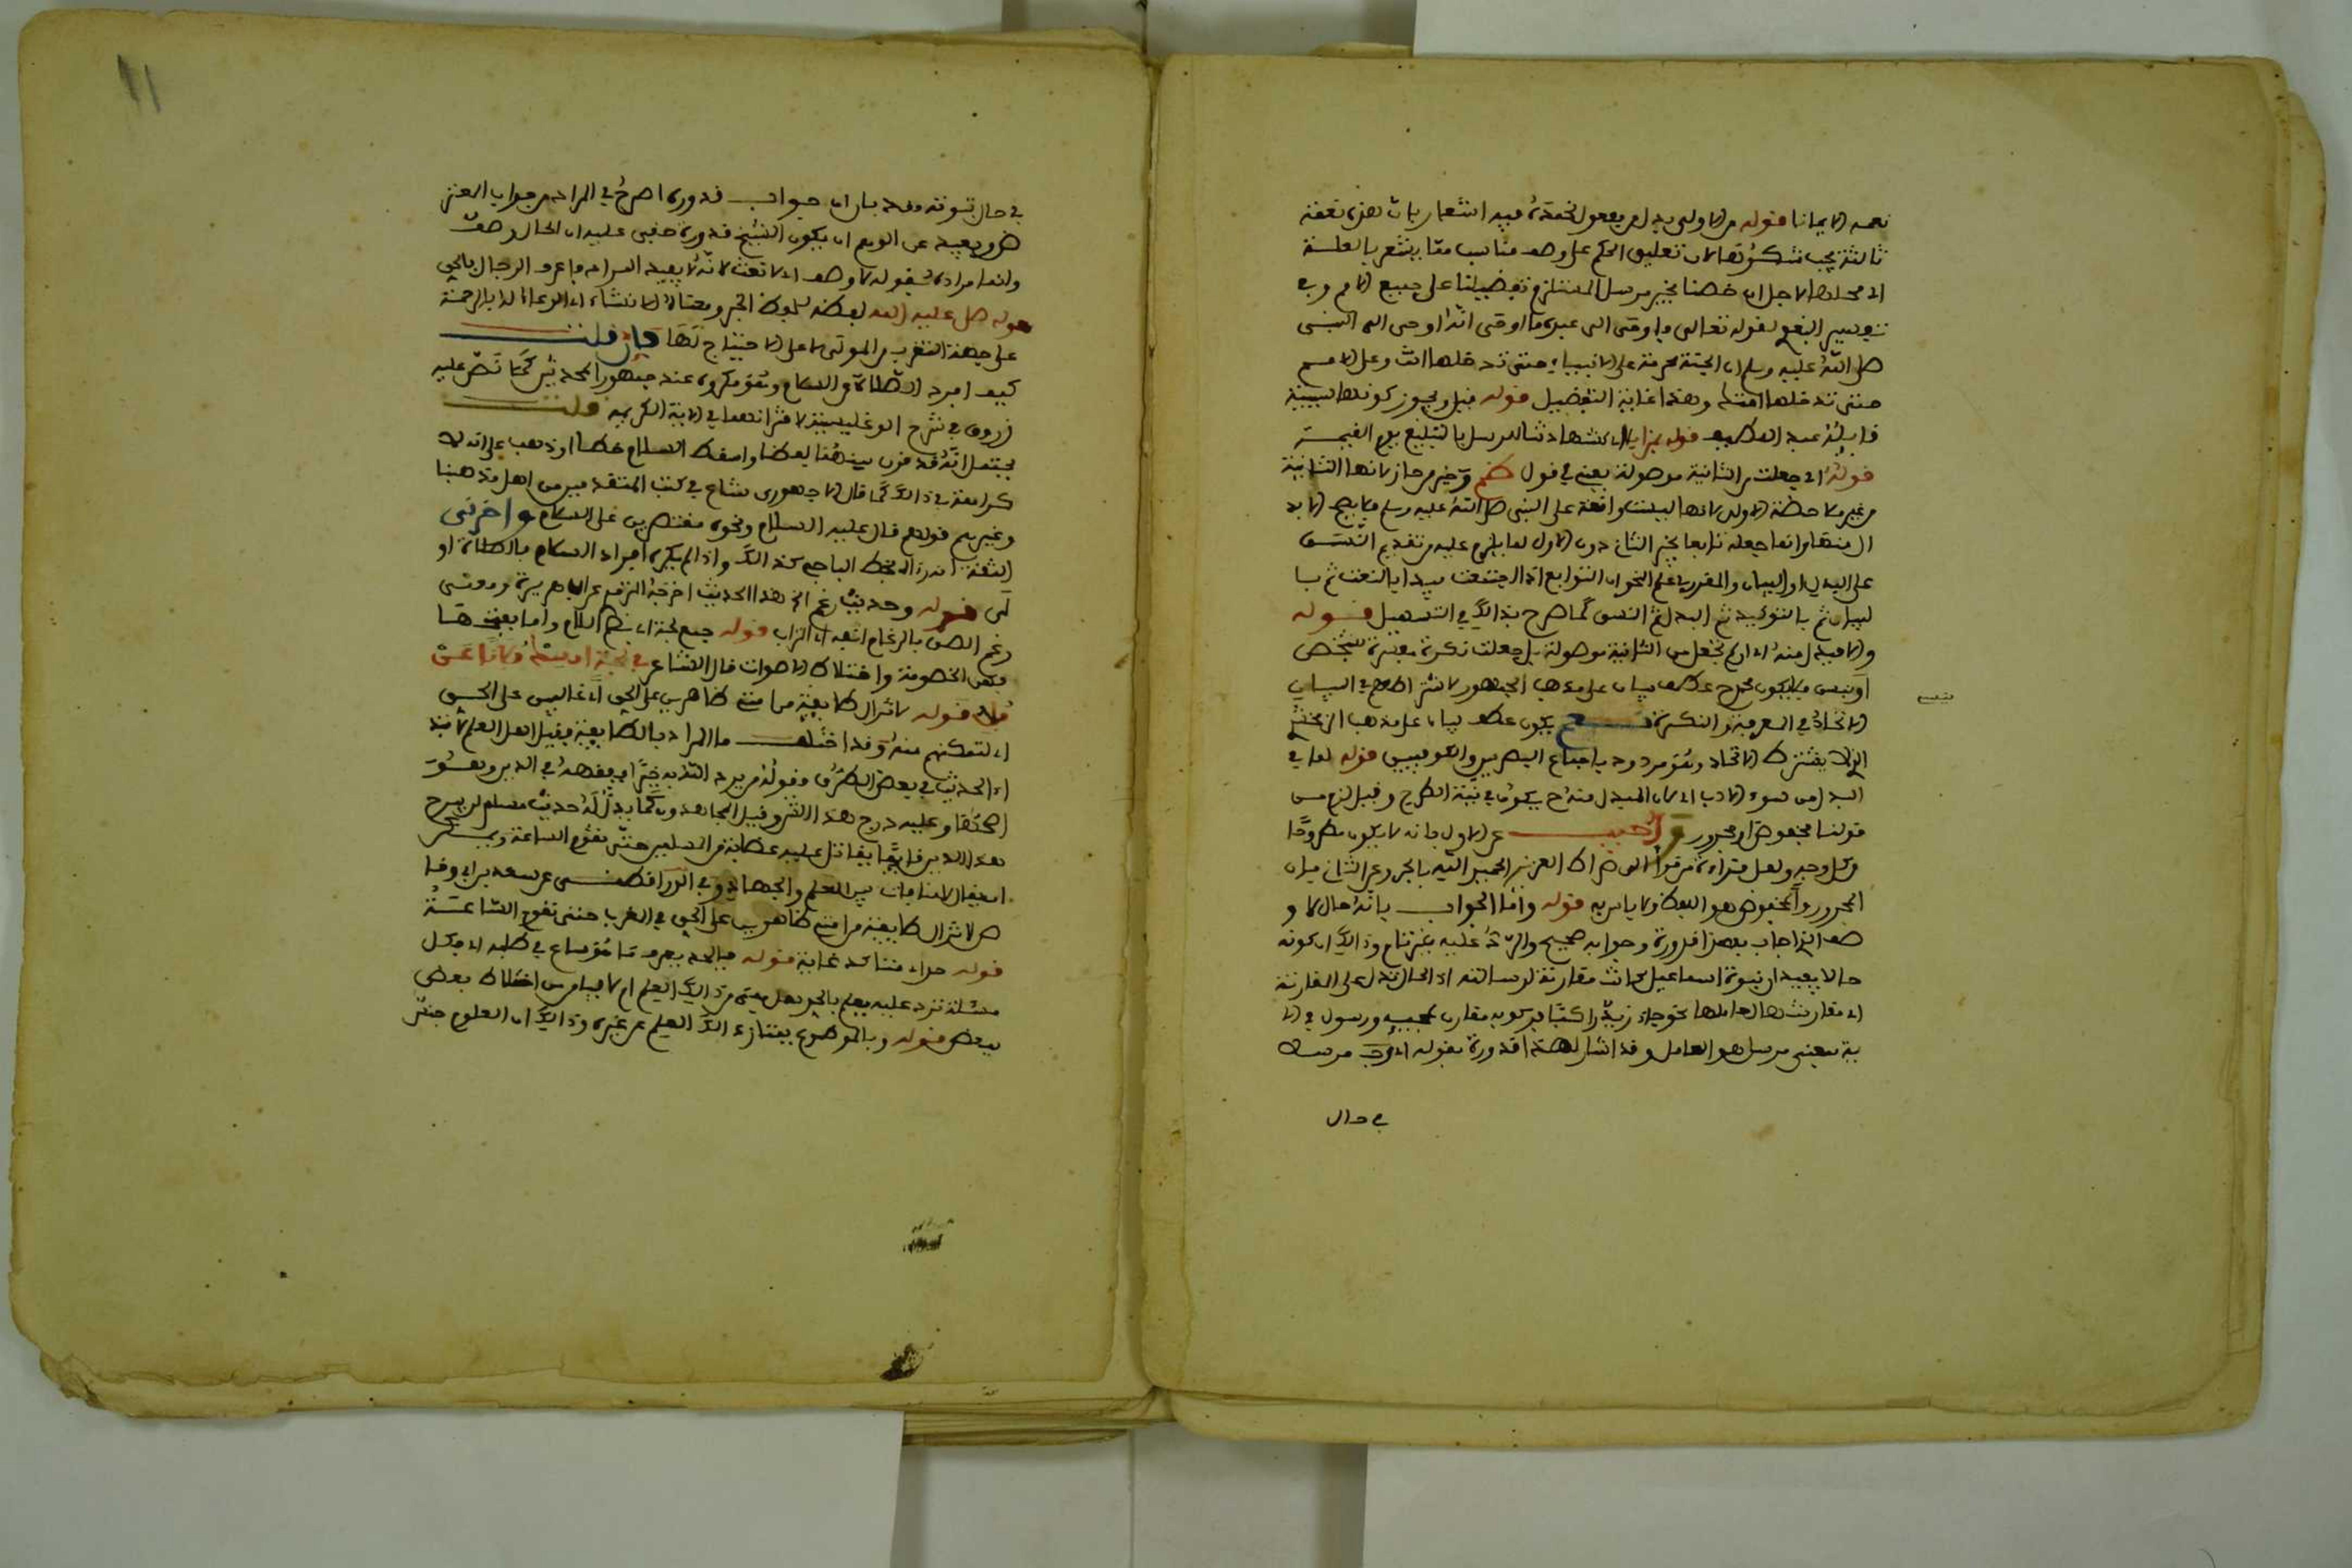 نعمه الايمانا قوله من الاولى بدل من مفعول نحمده فيه اشعار بان هذه نعمة
ثالثة يجب شكرها لان تعليق الحكم على وصف مناسب مما يشعر بالعلية
اي نحمده لاجل ان خصنا بخير مرسل المستلزم تفضيلنا على جميع الامم وفي
تفسير الثعلبي لقوله تعالى فاوحى الى عبده ما اوحى انه اوحى الى النبي
صلى الله عليه وسلم ان الجنة محرمة على الانبياء حتى تدخلها انت وعلى الامم
حتى تدخلها امتك وهذا غاية التفضيل قوله قيل ويجوز كونها سببية
قائله عبد اللطيف قوله بمزايا اي كشهادتنا للرسل بالتبليغ يوم القيمة
قوله اي جعلت من الثانية موصولة يعني في قول وخير من حاز لانها الثانية
من غير ملاحظة الاولى لانها ليست واقعة على النبي صلى الله عليه وسلم
انما جعله تابعا لخير الثاني دون الاول لما يلزم عليه من تقديم النسق
على البدل او البيان والمقرر في علم النحو ان التوابع اذا اجتمعت يبدا بالنعت ثم با
لبيان ثم بالتوكيد ثم البدل ثم النسق كما صرح بذالك في التسهيل قوله
والا فبدل منه اي ان لم تجعل من الثانية موصولة بل جعلت نكرة مفسرة بشخص
او نبي فلا يكون محمد عطف بيان على مذهب الجمهور لاشتراطهم في البيان
الاتحاد في المعرفة والنكرة نعم يكون عطف بيان على مذهب الزمخشري
الذي لا يشترط الاتحاد وهو مردود باجماع البصريين والكوفيين قوله لما في
البدل من سوء الادب اي لان المبدل منه يكون في نية الطرح وقيل لزم من
قولنا مخفوض او مجرور واجيب عن الاول بانه لا يكون مطروحا
من كل وجه ولعل قراءة من قرا الى صراط العزيز الحميد الله بالجر وعن الثاني بان
المجرور والمخفوض هو اللفظ ولا باس به قوله واما الجواب بانه حال لا و
صف الذي اجاب بهذا قدورة وجوابه صحيح والرد عليه غير تام وذالك ان كونه
حالا يفيد ان نبوة اسماعيل كانت مقارنة لرسالته اذ الحال تدل على المقارنة
اي مقارنتها لعاملها نحو جاء زيد راكبا فركوبه مقارن لمجيئه ورسول في الا
ية بمعنى مرسل هو العامل وقد اشار لهذا قدورة بقوله اي مرسل
في حال
في حال نبوته وبعد بان ان جواب قدورة اصرح في المراد من جواب العز
هذا وبعيد عن الوهم ان يكون الشيخ قدورة خفي عليه ان الحال وصف
وانما مراده بقوله لا وصف اي لا نعت لانه لا يفيد المراد فاعرف الرجال بالحق
قوله صلى عليه الله لفظه لفظ الخبر ومعناه الانشاء اي الدعاء له بالرحمة
على جهة التقرب من المولى لا على الاحتياج لها فان قلت
كيف افرد الصلاة من السلام وهو مكروه عند جمهور المحدثين كما نص عليه
زروق في شرح الوغليسية لاقترانهما في الاية الكريمة قلت
يحتمل انه قد قرن بينهما لفظا واسقط السلام خطا او ذهب على انه لا
كراهة في ذالك كما قال الاجهوري شاع في كتب المتقدمين من اهل مذهبنا
وغيرهم قولهم قال عليه السلام ونحوه مقتصرين على السلام واخبرني
الثقة انه راه بخط الباجي كذالك واذا لم يكره افراد السلام فالصلاة او
لى قوله وحديث رغم الخ هذا الحديث اخرجه الترمذي عن ابي هريرة ومعنى
رغم الصق بالرغام انفه اي التراب قوله جمع لجة اي بضم اللام واما بفتحها
فهي الخصومة واختلاط الاصوات قال الشاعر في لجة امسك فلانا عن
فل قوله لا تزال طايفة من امتي ظاهرين على الحق اي غالبين على الحق
اي لتمكنهم منه وقد اختلف ما المراد بالطايفة فقيل اهل العلم لانه
اي الحديث في بعض الطرق وقوله من يرد الله به خيرا يفقهه في الدين وهو
اصحها وعليه درج هذا الشرح وقيل المجاهدون كما يدل له حديث مسلم لن يبرح
هذا الدين قائما يقاتل عليه عصابة من المسلمين حتى تقوم الساعة ويمكن
ان يقال لا منافات بين العلم والجهاد وفي الدراقطني عن سعد بن ابي وقا
ص لا تزال طايفة من امتي ظاهرين على الحق في المغرب حتى تقوم الساعة
قوله حداء منتاكد غاية قوله فبالحد يعرف ما هو ساع في طلبه اي فكل
مسئلة ترد عليه يعلم بالحد هل هي من ذالك العلم ام لا فيامن من اختلاط بعض
ببعض قوله وبالموضوع يمتاز اي ذالك العلم عن غيره وذالك ان العلوم جنس